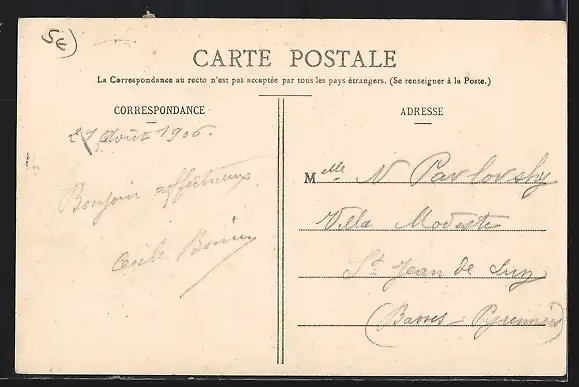 5€
CARTE POSTALE
La Correspondance au recto n'est pas acceptée par tous les pays étrangers. (Se renseigner à la Poste.)
CORRESPONDANCE
27 Août 1906.
Bonjour affectueux
Cécile
ADRESSE
Melle N Pavlovsky
Villa Modeste
St Jean de Luz
(Basses-Pyrennées)